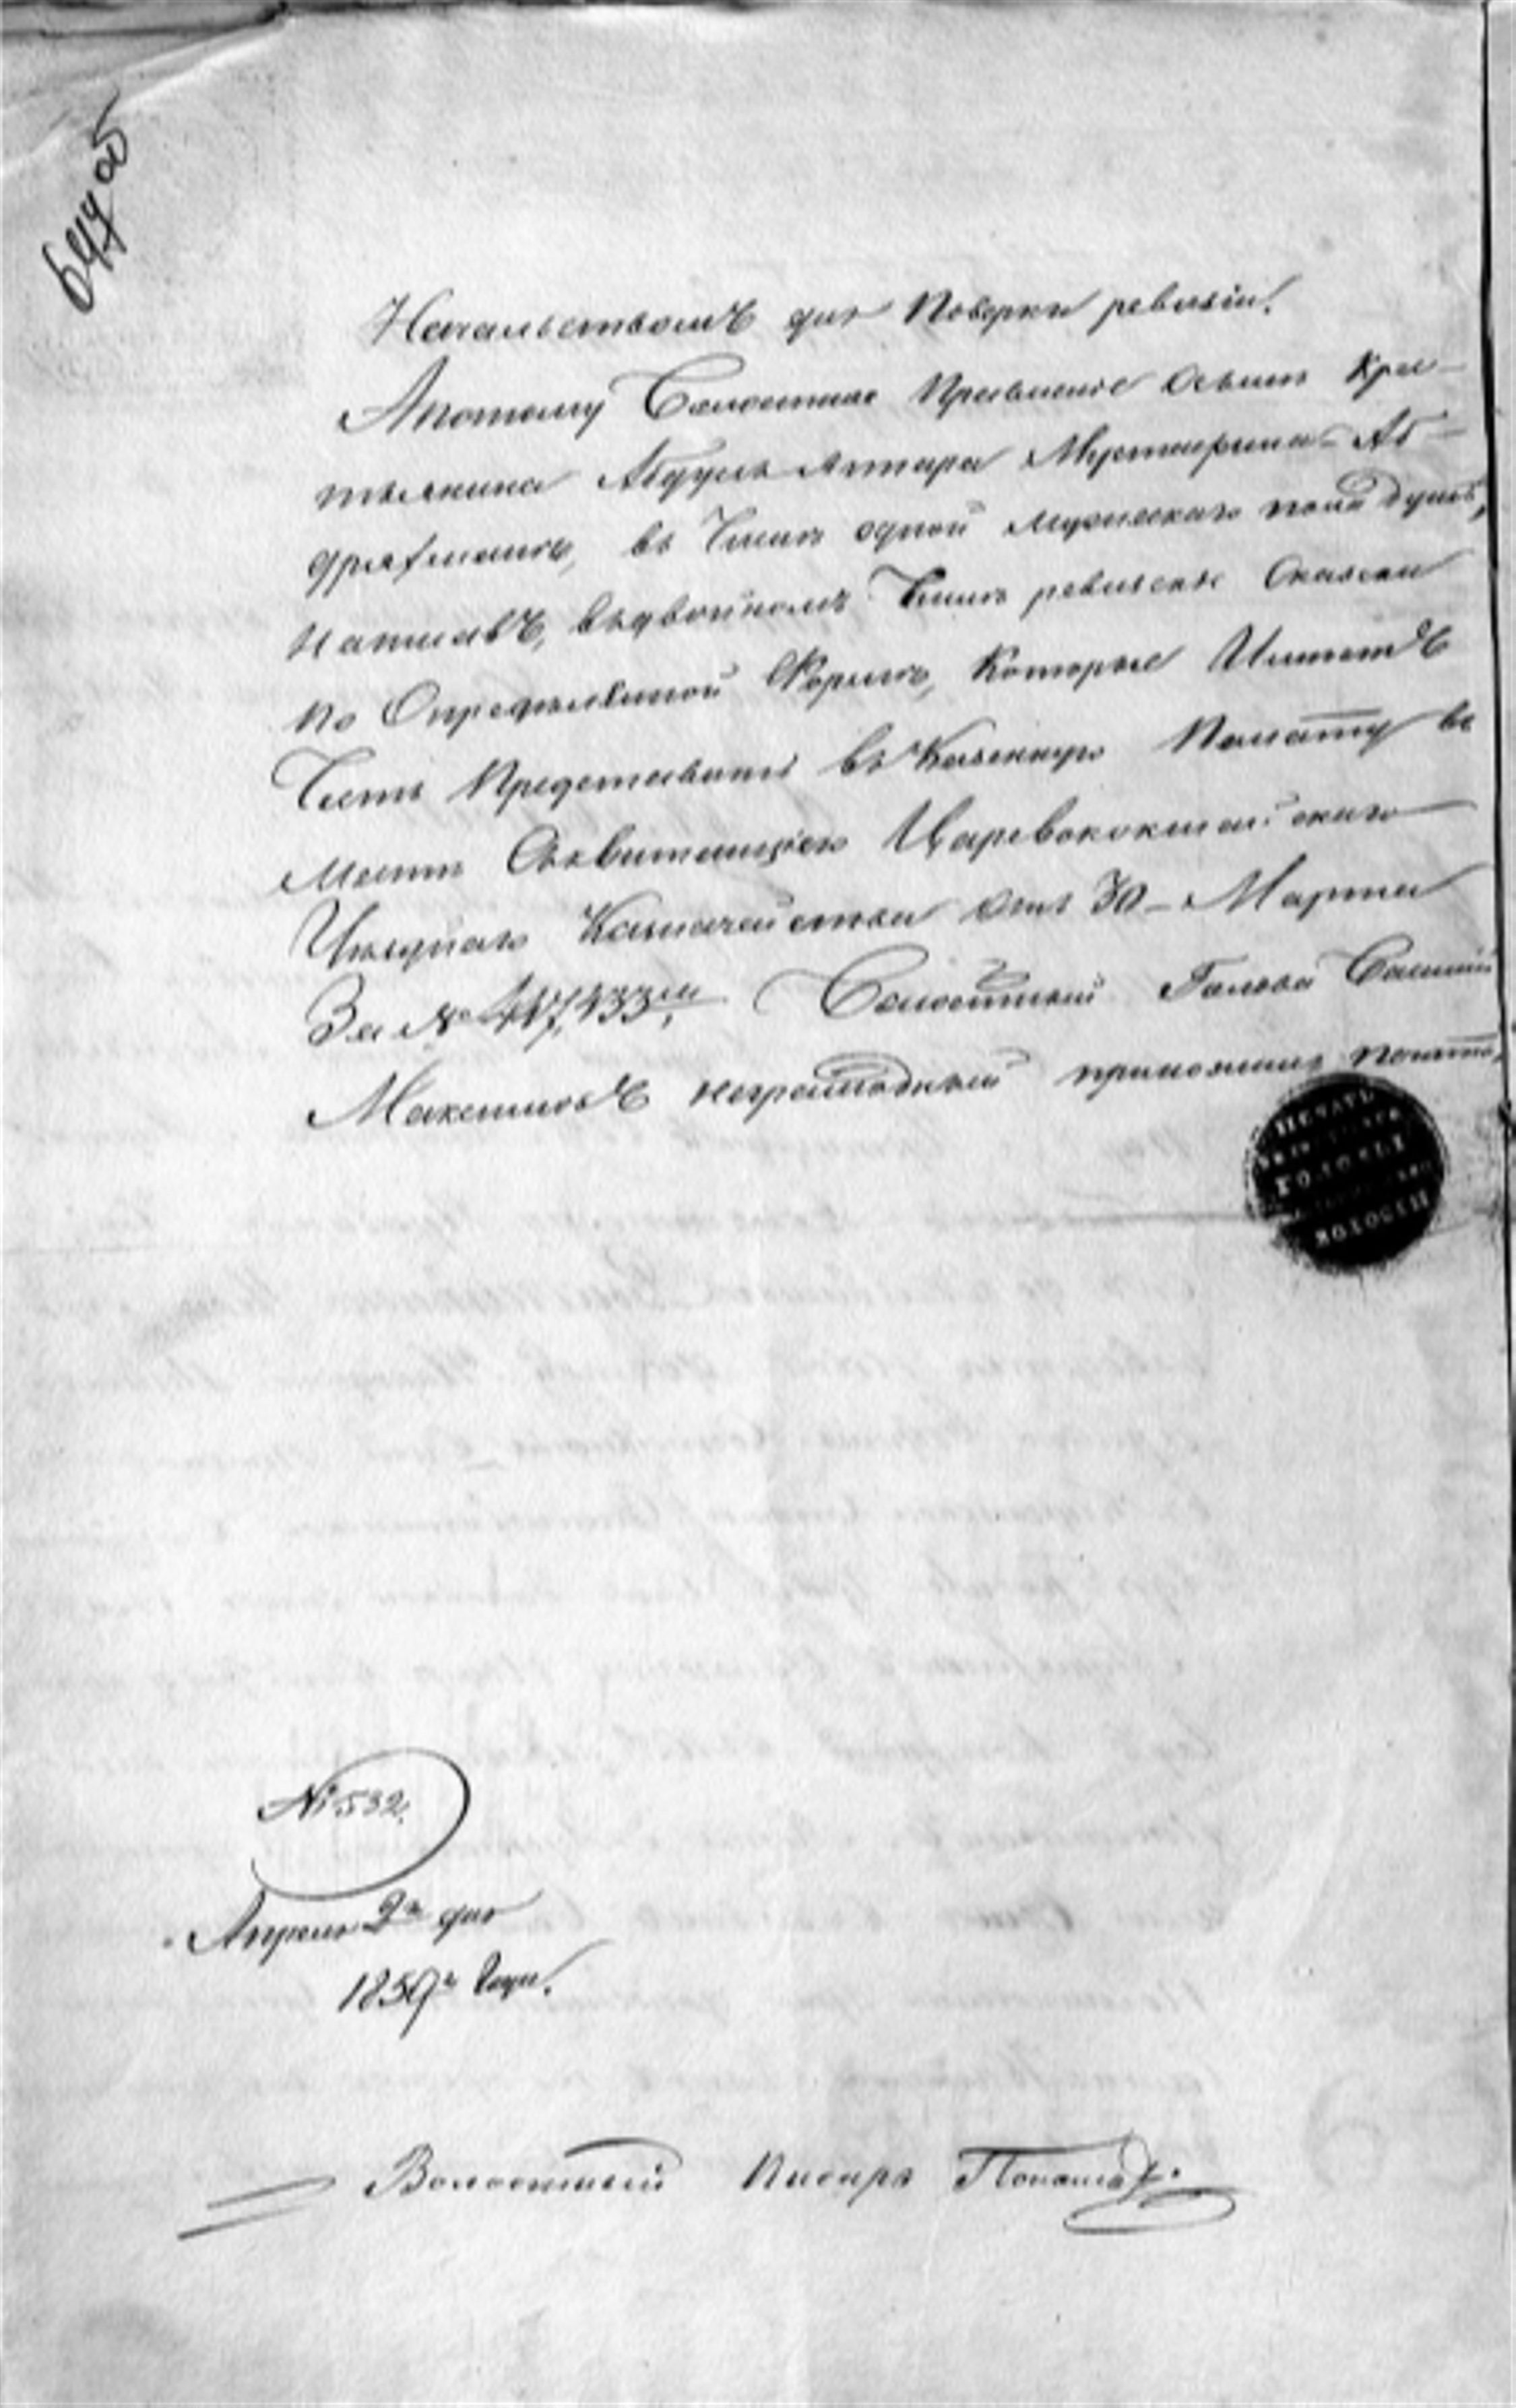 647 об
Начальствомъ для Поверки ревизіи.
Апотому Волостное Правленіе Объ Кре-
стьянина Абдулъ Аттара Муртазина Аб-
въ Числе одной мужескаго пола души,
въдвойномъ Числе ревизскіе Сказки
по Определенной Форме, Которые Имеетъ
Честь Представить въ Казенную Палату въ
месте Съквитанціею Царевококшайскаго
Уезднаго Казначейства отъ 30 Марта
За №
Волостный Голова
Максимовъ неграмотный приложилъ печать.
ПЕЧАТЬ
ГОЛОВЫ
ВОЛОСТИ
№ 532.
Апреля 2го дня
1859го Года.
Волостный Писарь